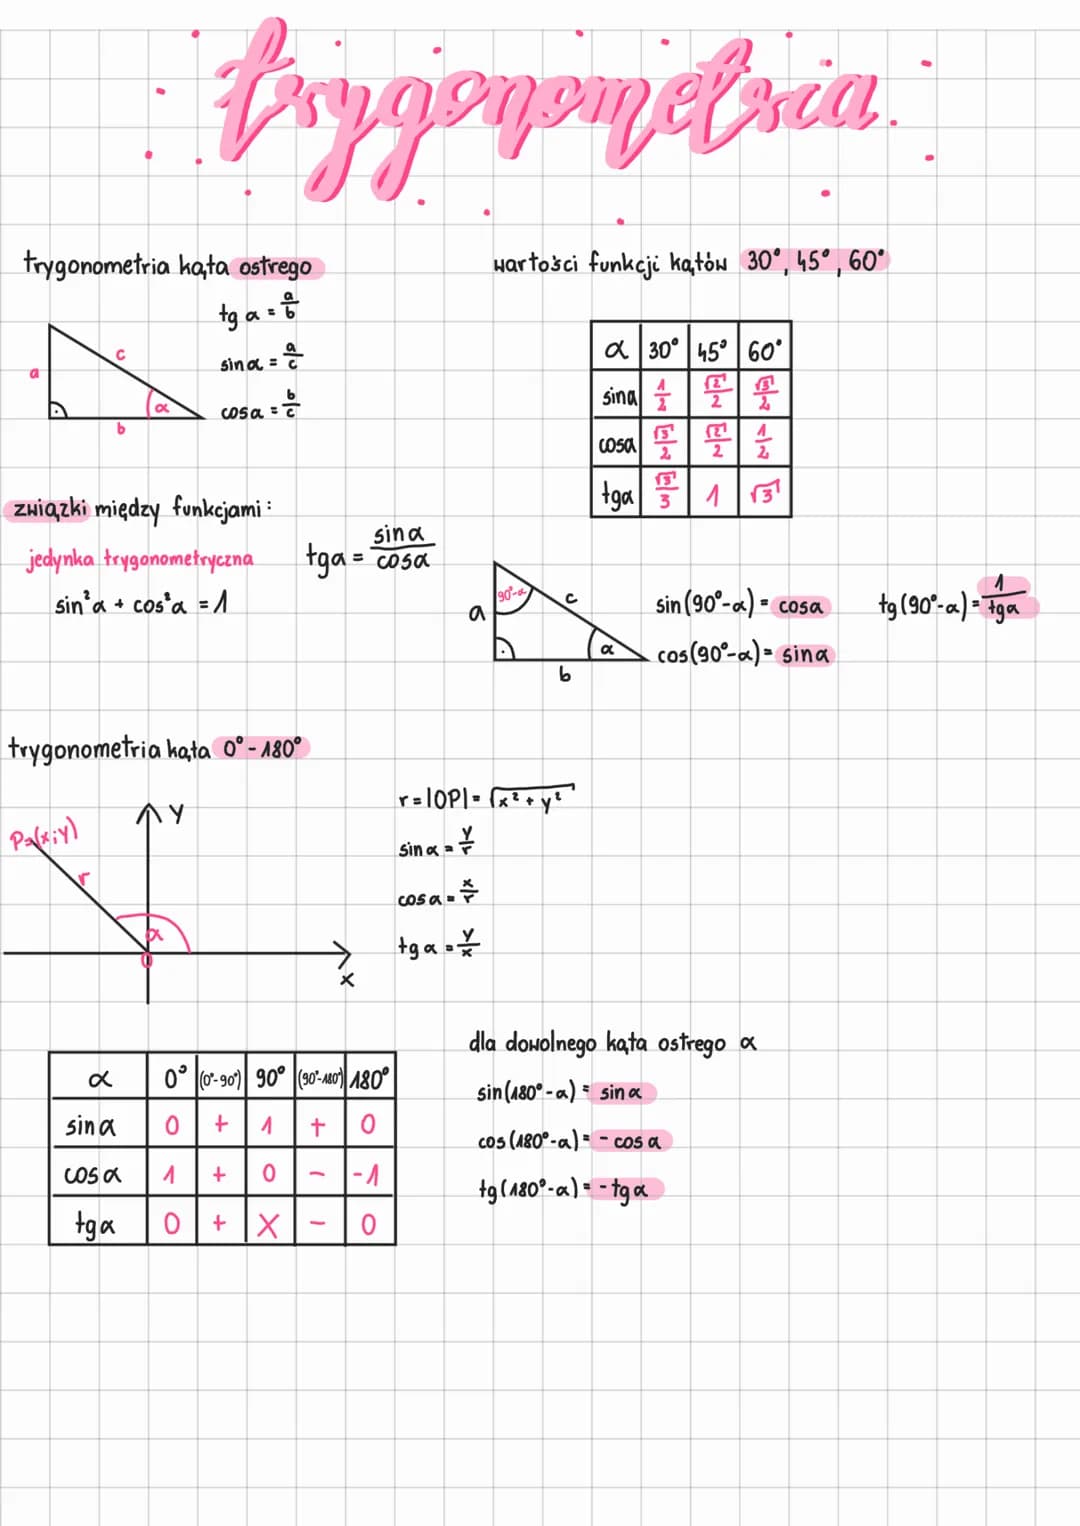 trygonometria
trygonometria kąta ostrego
tg α = a/b
sin α = a/c
cos α = b/c
a
c
α
b
wartości funkcji kątów 30°, 45°, 60°
α 30° 45° 60°
sin α 1/2 √2/2 √3/2
cos α √3/2 √2/2 1/2
tg α √3/3 1 √3
związki między funkcjami:
jedynka trygonometryczna
sin²α + cos²α = 1
tg α = sin α/cos α
90°-α
a
c
α
b
sin(90°-α) = cos α
cos(90°-α) = sin α
tg(90°-α) = 1/tg α
trygonometria kąta 0° - 180°
P=(x;y)
r
α
0
Y
X
r = |OP| = √x² + y²
sin α = y/r
cos α = x/r
tg α = y/x
α 0° (0°-90°) 90° (90°-180°) 180°
sin α 0 + 1 + 0
cos α 1 + 0 - -1
tg α 0 + X - 0
dla dowolnego kąta ostrego α
sin(180°-α) = sin α
cos(180°-α) = - cos α
tg(180°-α) = - tg α